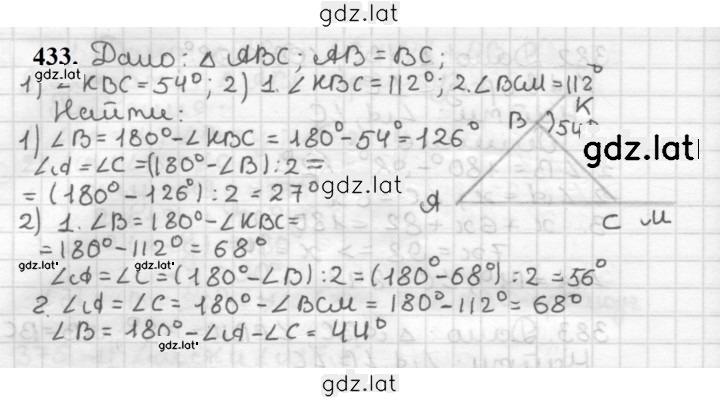 gdz.lat
433. Дано: △ ABC; AB = BC;
gdz.lat
1) ∠KBC = 54°; 2) 1. ∠KBC = 112°; 2. ∠BCM = 112°
Найти:
K
B
54°
1) ∠B = 180° - ∠KBC = 180° - 54° = 126°
gdz.lat
∠A = ∠C = (180° - ∠B) : 2 =
= (180° - 126°) : 2 = 27°
gdz.lat
A
C M
2) 1. ∠B = 180° - ∠KBC =
= 180° - 112° = 68°
gdz.lat
gdz.lat
∠A = ∠C = (180° - ∠B) : 2 = (180° - 68°) : 2 = 56°
2. ∠A = ∠C = 180° - ∠BCM = 180° - 112° = 68°
∠B = 180° - ∠A - ∠C = 44°
gdz.lat
gdz.lat